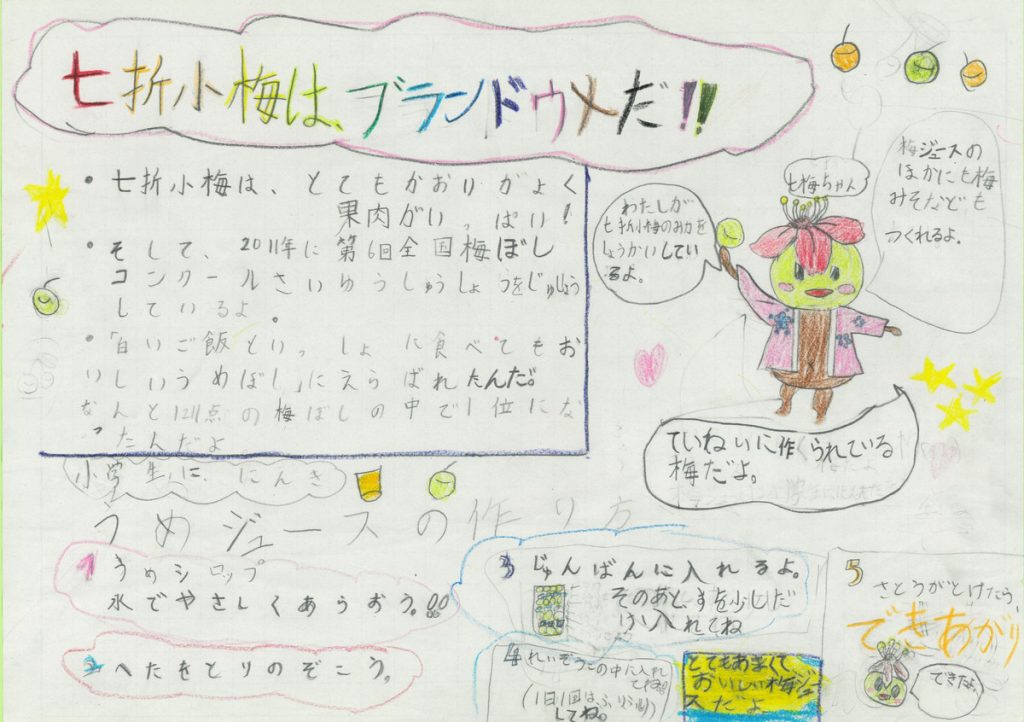 七折小梅は、ブランドウメだ!!
・七折小梅は、とてもかおりがよく
果肉がいっぱい!
・そして、2011年に第6回全国梅ぼし
コンクールさいゆうしゅうしょうをじゅしょう
しているよ。
・「白いご飯といっしょに食べてもお
いしいうめぼし」にえらばれたんだ。
なんと1211点の梅ぼしの中で1位にな
ったんだよ
わたしが
七折小梅のみりょくを
しょうかいしてい
るよ。
七梅ちゃん
梅ジュースの
ほかにも梅
みそなども
つくれるよ。
ていねいに作られている
梅だよ。
小学生に、にんき
うめジュースの作り方
1 うめシロップ
水でやさしくあらおう。!!
2 へたをとりのぞこう。
3 じゅんばんに入れるよ。
そのあと、すを少しだ
け入れてね
4 れいぞうこの中に入れ
てね
(1日1回はふりふり)
してね。
とてもあまくて
おいしい梅ジュー
スだよ
5 さとうがとけたら、
できあがり
できたよ。